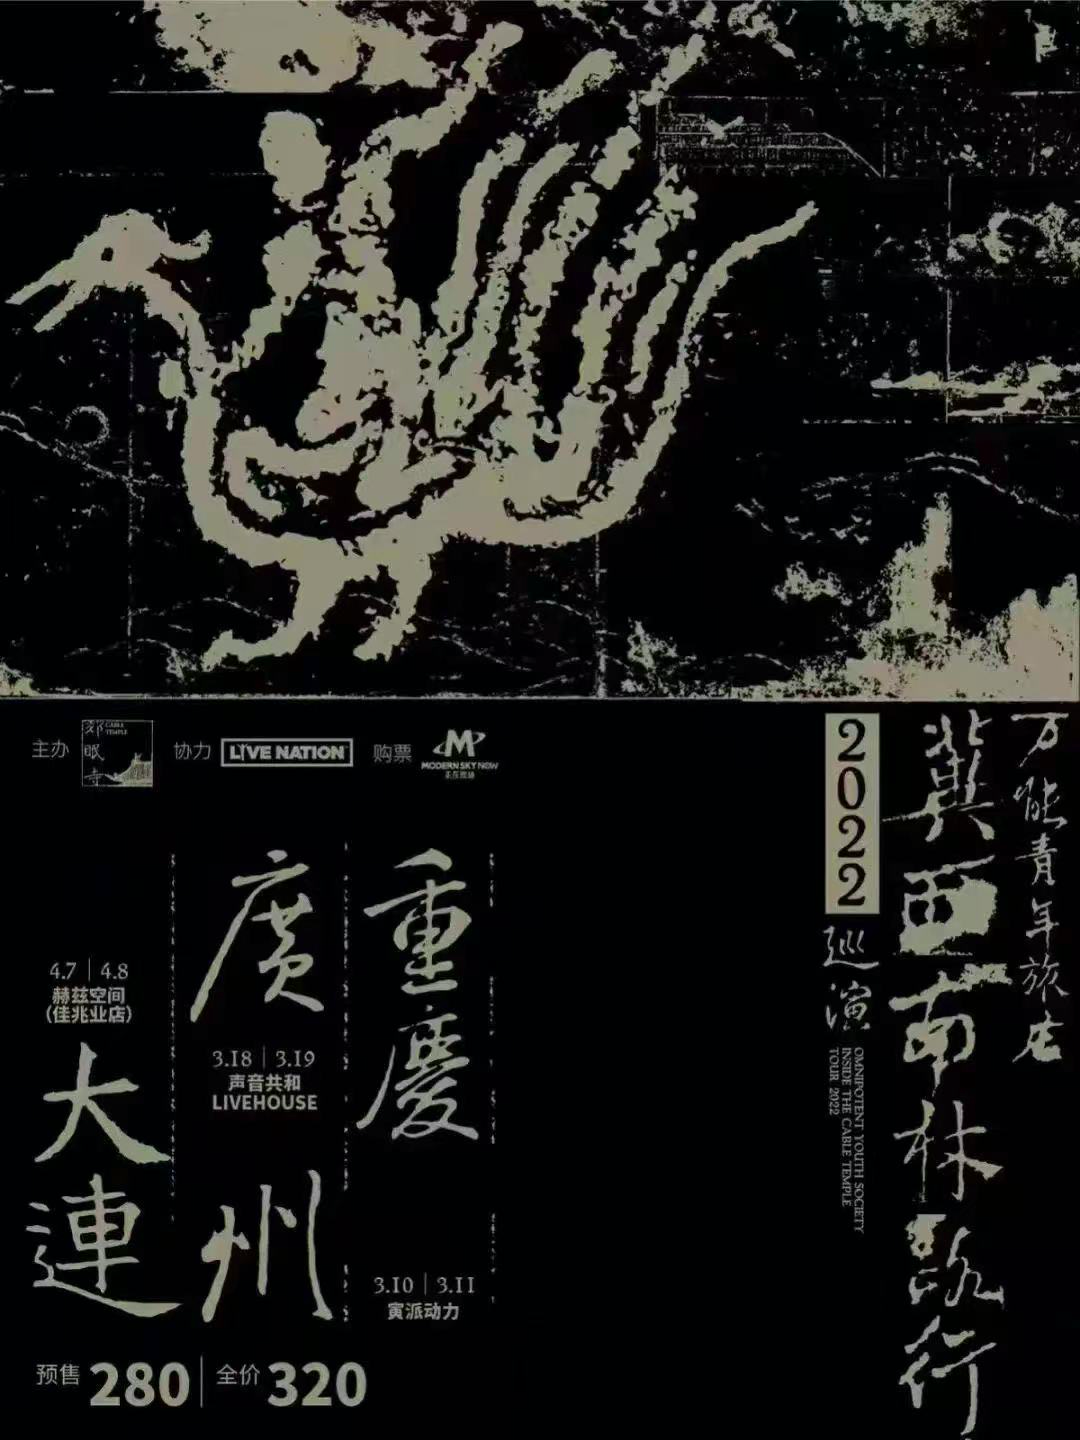 主办
郊眠寺
CABLE
TEMPLE
协力
LIVE NATION
购票
MODERN SKY NOW
正在现场
万能青年旅店
冀西南林路行
2022
巡演
OMNIPOTENT YOUTH SOCIETY
INSIDE THE CABLE TEMPLE
TOUR 2022
重慶
3.10 | 3.11
寅派动力
廣州
3.18 | 3.19
声音共和
LIVEHOUSE
大連
4.7 | 4.8
赫兹空间
(佳兆业店)
预售 280 | 全价 320